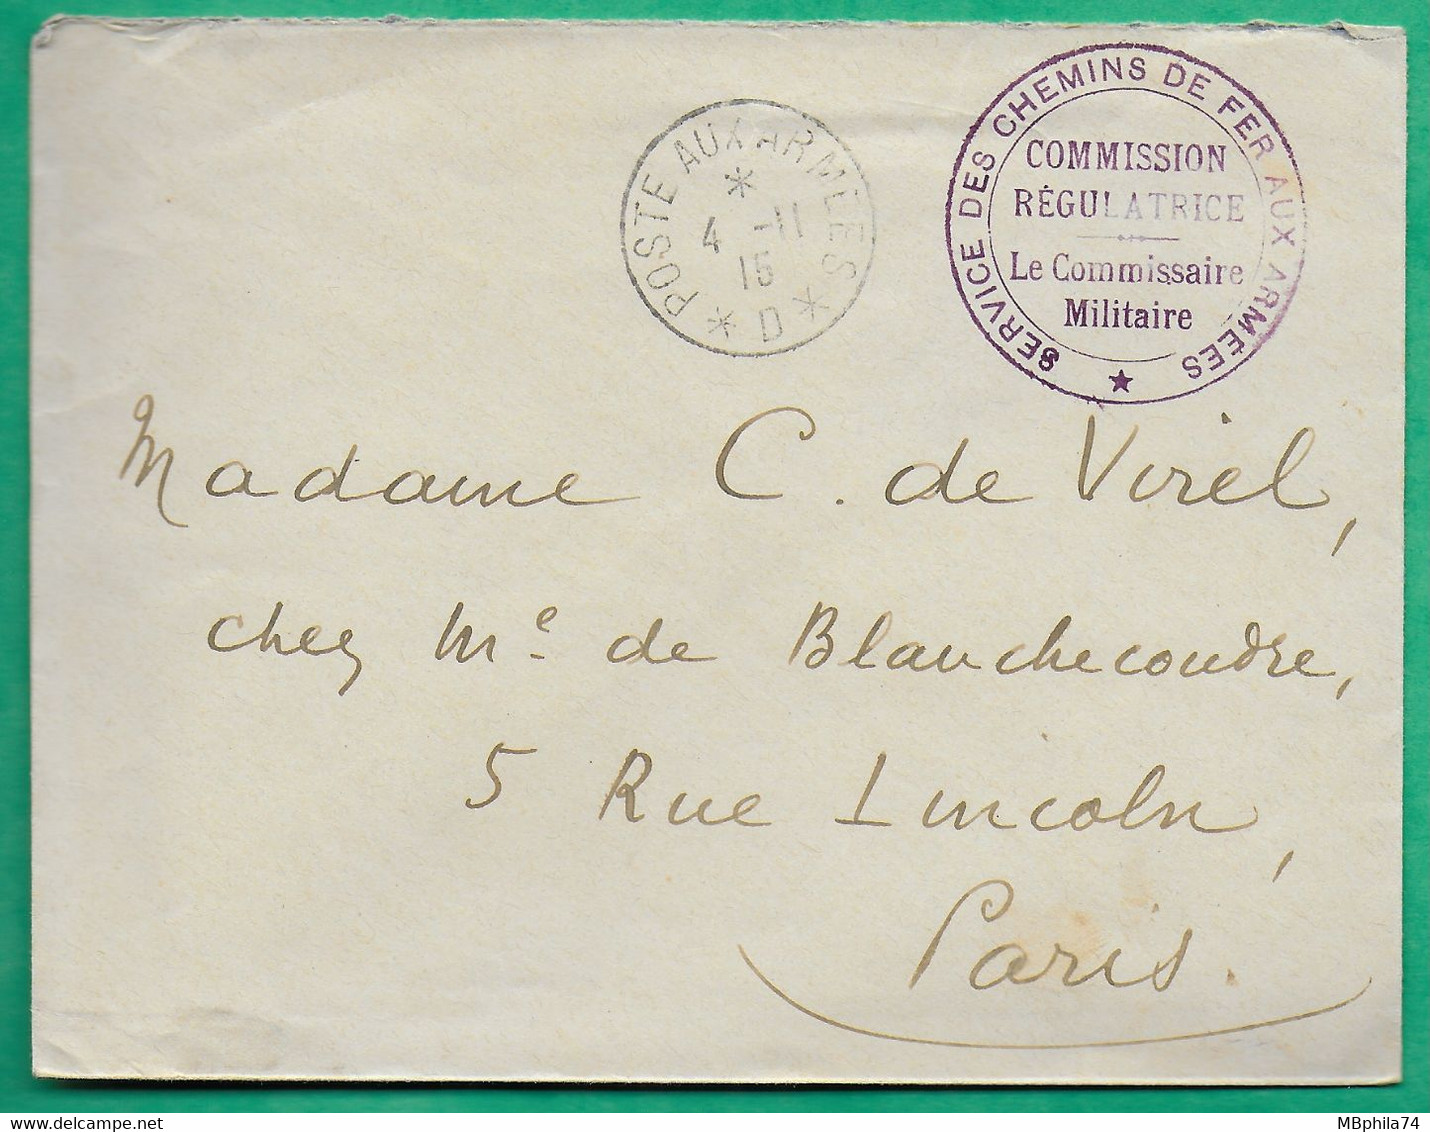 POSTE AUX ARMÉES
*
4 -11
15
* D *
SERVICE DES CHEMINS DE FER AUX ARMÉES
COMMISSION
RÉGULATRICE
Le Commissaire
Militaire
★
Madame C. de Virel,
chez Me. de Blanchecoudre,
5 Rue Lincoln,
Paris.
MBphila74